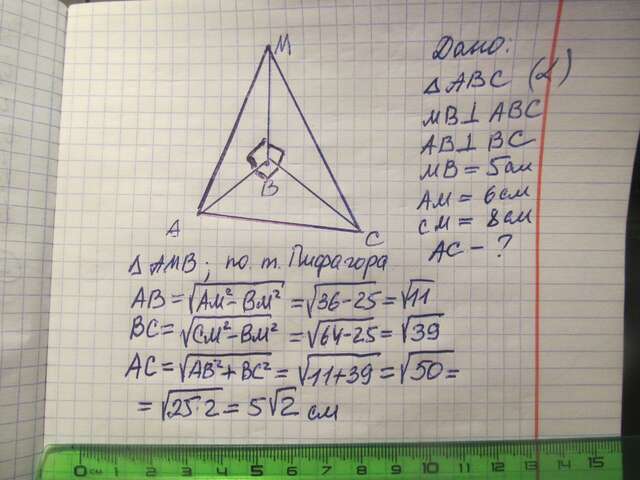 M
A
B
C
Дано:
△ABC (α)
MB⊥ABC
AB⊥BC
MB = 5см
AM = 6см
CM = 8см
AC - ?
△AMB; по т. Пифагора
AB = √AM²-BM² = √36-25 = √11
BC = √CM²-BM² = √64-25 = √39
AC = √AB²+BC² = √11+39 = √50 =
= √25·2 = 5√2 см
0 см 1 2 3 4 5 6 7 8 9 10 11 12 13 14 15